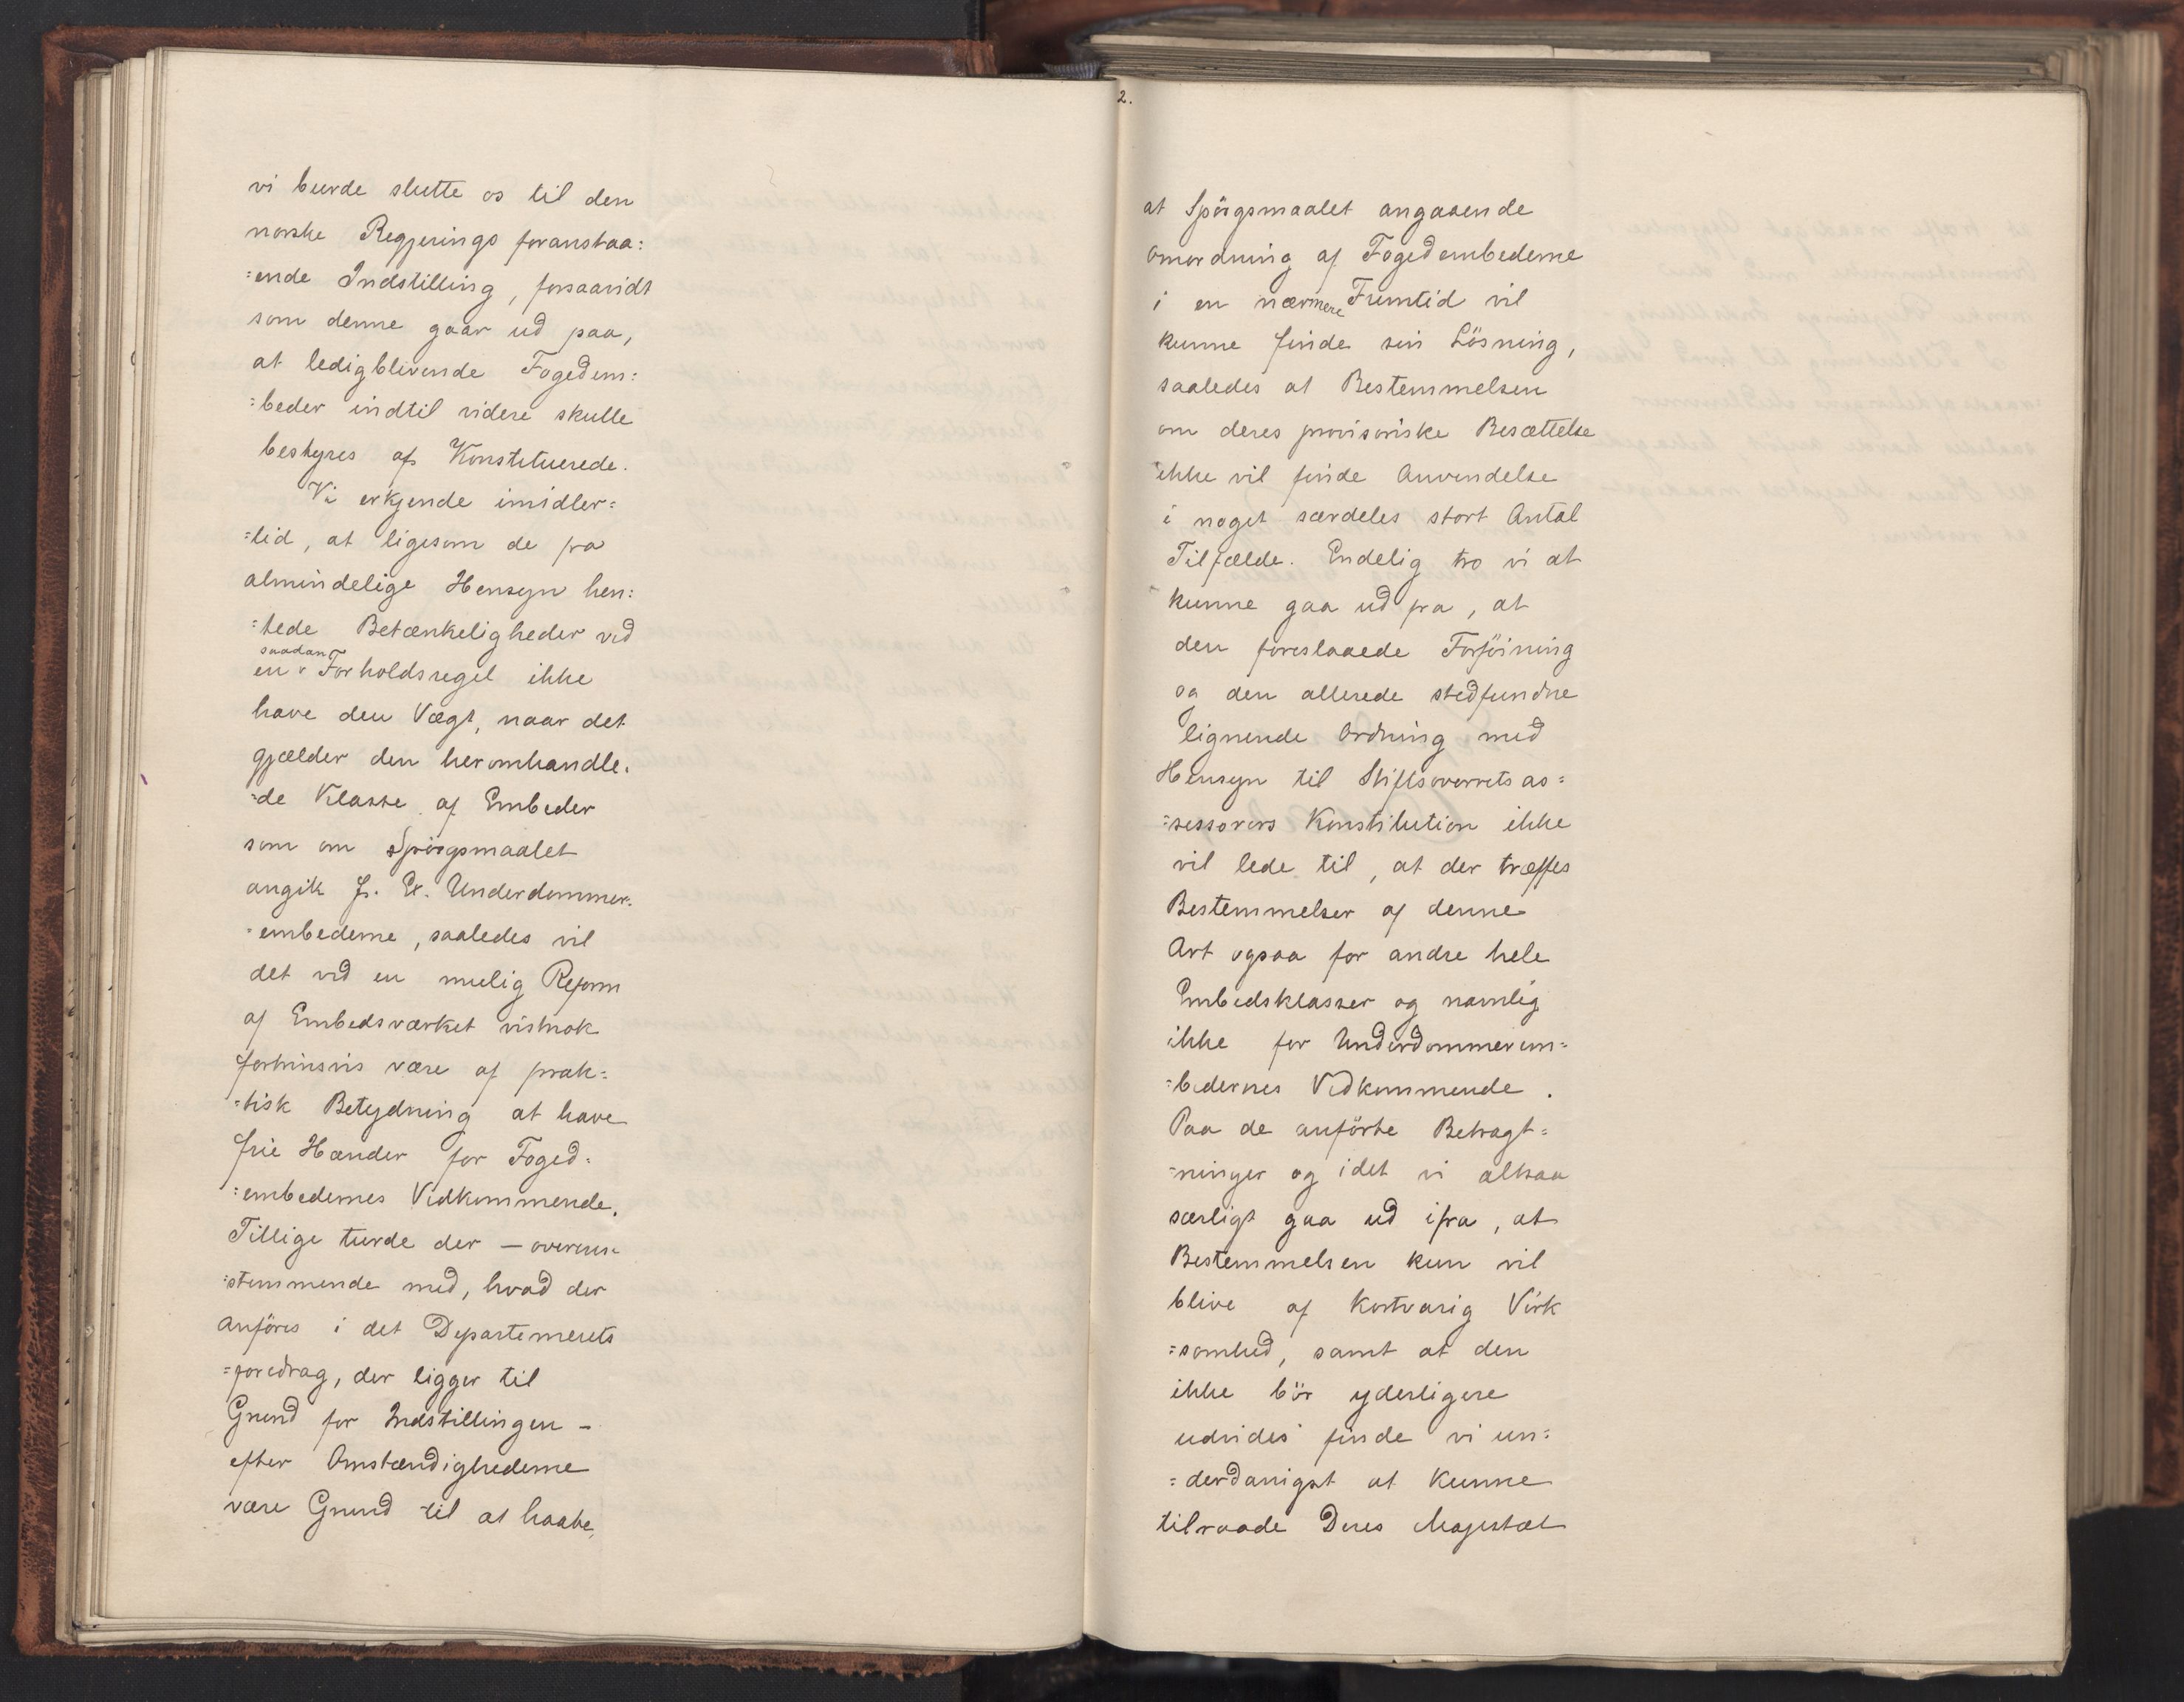 vi burde slutte os til den
norske Regjerings foranstaa:
:ende Indstilling, forsaavidt
som denne gaar ud paa,
at ledigblivende Fogedem:
:beder indtil videre skulle
bestyres af Konstituerede.
Vi erkjende imidler:
:tid, at ligesom de fra
almindelige Hensyn hen:
:tede Betænkeligheder ved
saadan
en v Forholdsregel ikke
have den Vægt, naar det
gjælder den heromhandle.
:de Klasse af Embeder
som om Spörgsmaalet
angik f. Ex. Underdommer:
:embederne, saaledes vil
det ved en mulig Reform
af Embedsværket vistnok
fortrinsvis være af prak:
:tisk Betydning at have
frie Hænder for Foged:
:embedernes Vidkommende.
Tillige turde der — overens:
:stemmende med, hvad der
anföres i det Departements
:foredrag, der ligger til
Grund for Indstillingen –
efter Omstændighederne
være Grund til at haabe,
2.
at Spörgsmaalet angaaende
Omordning af Fogedembederne
i en nærmere Fremtid vil
kunne finde sin Lösning,
saaledes at Bestemmelsen
om deres provisoriske Besættelse
ikke vil finde Anvendelse
i noget særdeles stort Antal
Tilfælde. Endelig tro vi at
kunne gaa ud fra, at
den foreslaaede Forföining
og den allerede stedfundne
lignende Ordning med
Hensyn til Stiftsoverrets as:
:sessorers Konstitution ikke
vil lede til, at der træffes
Bestemmelser af denne
Art ogsaa for andre hele
Embedsklasser og navnlig
ikke for Underdommerem:
:bedernes Vidkommende.
Paa de anförte Betragt:
:ninger og idet vi altsaa
særligt gaa ud ifra, at
Bestemmelsen kun vil
blive af kortvarig Virk
:somhed, samt at den
ikke bör yderligere
udvides finde vi un:
:derdanigst at kunne
tilraade Deres Majestæt